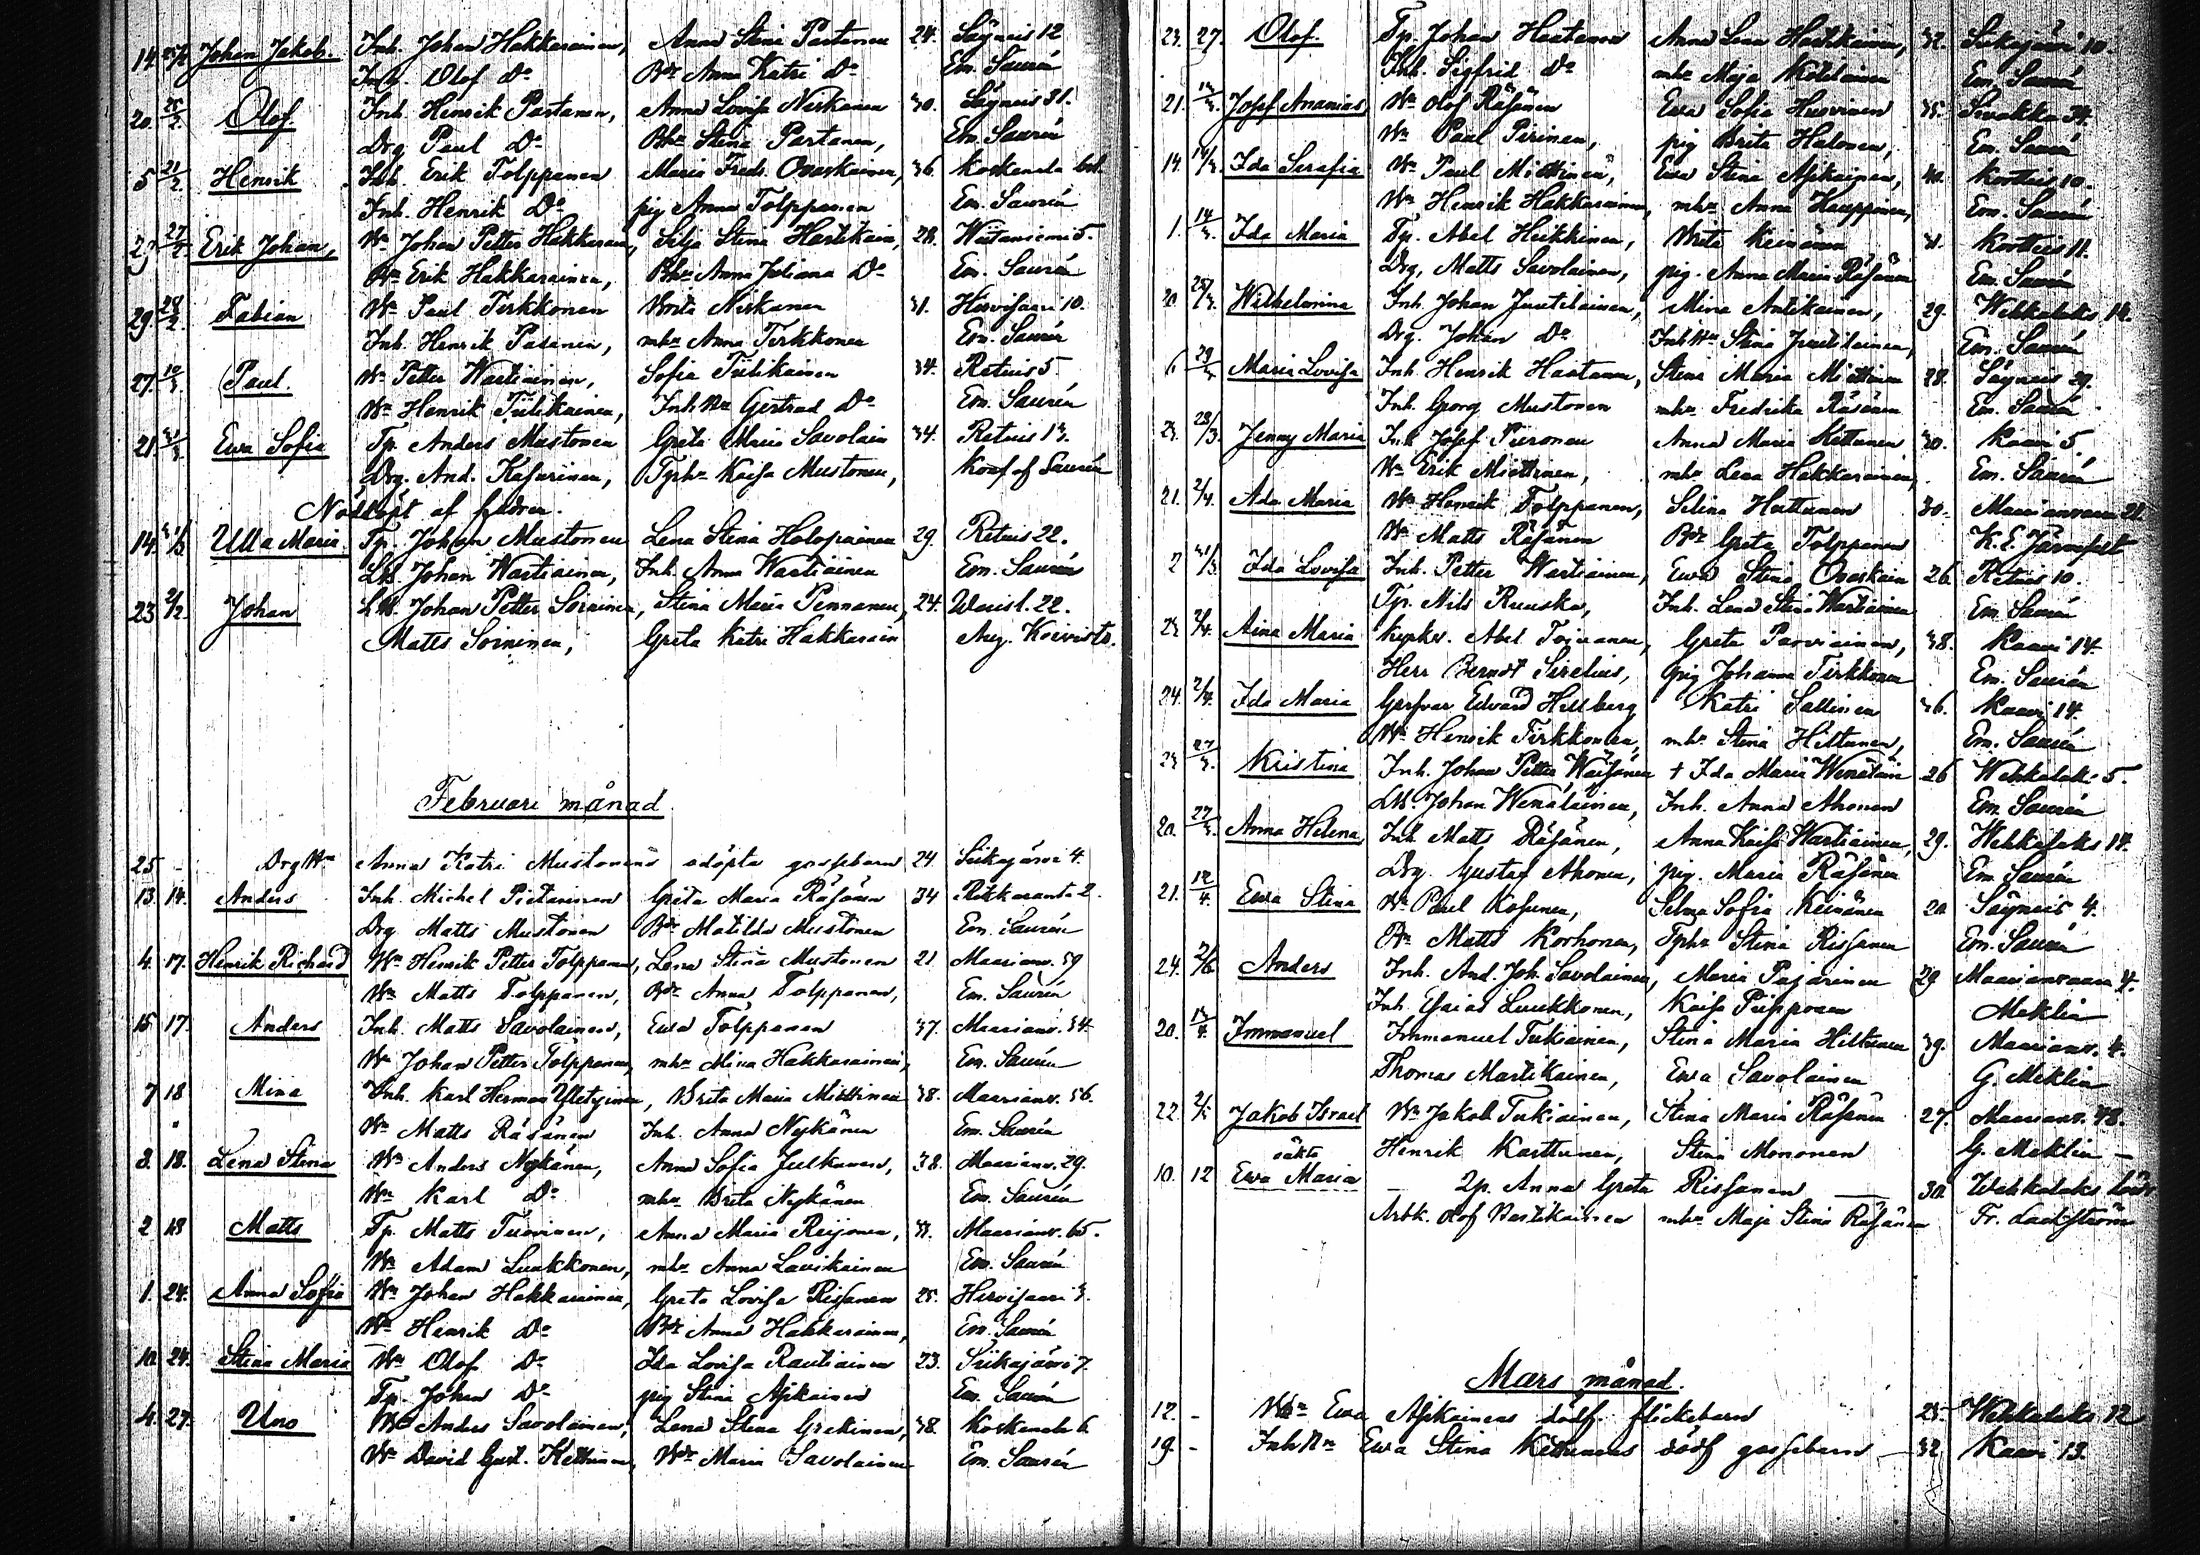 14. 25/2 Johan Jakob. Inh. Johan Hakkarainen, Anna Stina Partanen 24. Säyneis 12
Inh. Olof Do Bdr Anna Katri Do Em. Saurén
20. 25/2 Olof. Inh. Henrik Partanen, Anna Lovisa Niskanen 30. Säyneis 31.
Drg Paul Do Stina Partanen, Em. Saurén
5 21/2 Henrik Inh. Erik Tolppanen Maria Fredr. Ovaskainen, 36 Koskenala
Inh. Henrik Do pig Anna Tolppanen Em. Saurén
29 27/2 Erik Johan, Wn Johan Petter Hakkarain, Silja Stina Hartikain, 28. Wäitaniemi 5.
Bn Erik Hakkarainen, Anna Juliana Do Em. Saurén
29 28/2 Fabian Wn Paul Tirkkonen Brita Niskanen 31. Hirvisaari 10.
Inh. Henrik Pasanen, mhr Anna Tirkkonen Em. Saurén
27. 10/3 Paul. Wn Petter Wartiainen, Sofia Tulikainen 34. Retuis 5.
Wn Henrik Tulikainen, Inh. Gertrud Do Em. Saurén
21. Ewa Sofia Tp. Anders Mustonen Greta Maria Savolain 34. Retuis 13.
Drg. And. Kasurinen, Tphr Kaisa Mustonen, Konf af Saurén
Nöddöpt af fadren.
14. 31/3 Ulla Maria Tp. Johan Mustonen Lena Stina Holopainen 29. Retuis 22.
Johan Wartiainen, Inh. Anna Wartiainen Em. Saurén
23. 2/2 Johan Johan Petter Soininen, Stina Maria Pennanen, 24. 22.
Matts Soininen, Greta Katri Hakkarain Aug. Koivisto.
Februari månad.
25 - Drg Wn Anna Katri Mustonens odöpta gossebarn 24. Siikajärvi 4.
13. 14. Anders Inh. Michel Pietarinen Greta Maria Räsänen 34 Rikkaranta 2.
Drg Matts Mustonen Matilda Mustonen Em. Saurén
4. 17. Henrik Richard Wn Henrik Petter Tolppanen, Lena Stina Mustonen 21. Maarianv. 59
Wn Matts Tolppanen, Anna Tolppanen, Em. Saurén
15. 17. Anders Inh. Matts Savolainen, Ewa Tolppanen 37. Maarianv. 34.
Wn Johan Petter Tolppanen, mhr Mina Hakkarainen, Em. Saurén
7 18 Mina Inh. Karl Herman Yletyinen, Brita Maria Miettinen 38. Maarianv. 56.
Wn Matts Räsänen Inh. Anna Nykänen Em. Saurén
3. 18. Lena Stina Wn Anders Nykänen, Anna Sofia Julkunen, 38. Maarianv. 29.
Wn Karl Do mhr Brita Nykänen Em. Saurén
2 18 Matts Tp. Matts Turunen, Anna Maria Reijonen, 31. Maarianv. 65.
Wn Adam Luukkonen, mhr Anna Lavikainen Em. Saurén
1. 24. Anna Sofia Wn Johan Hakkarainen, Greta Lovisa Rissanen 25. Hirvisaari 3.
Wn Henrik Do Anna Hakkarainen, Em. Saurén
10. 24. Stina Maria Wn Olof Do Ida Lovisa Rautiainen 23. Siikajärvi 7.
Tp. Johan Do pig Stina Asikainen Em. Saurén
4. 27. Uno Anders Savolainen, Lena Stina 38. Koskenala 6
Wn David Gust. Kettunen, Maria Savolainen Em. Saurén
23. 27. Olof. Tp. Johan Haatanen Anna Lena Hartikainen, 32. Siikajärvi 10.
Inh. Sigfrid Do mhr Maja Em. Saurén
21. Josef Ananias, Wn Olof Räsänen Ewa Sofia 35. Sivakka 34.
Wn Paul Pirinen, pig Brita Halonen, Em. Saurén
14. Ida Serafia Wn Paul Miettinen, Ewa Stina Asikainen, 40. Kortteis 10.
Wn Henrik Hakkarainen, mhr Anna Kauppinen, Em. Saurén
1. Ida Maria Tp. Abel Heikkinen, Brita Keinänen 31. Kortteis 11.
Drg. Matts Savolainen, pig. Anna Maria Räsänen Em. Saurén
20. Wilhelmina Inh. Johan Juutilainen, Mina Antikainen, 29. Wehkalaks 14.
Drg. Johan Do Stina Juutilainen, Em. Saurén
6 Maria Lovisa Inh. Henrik Haatanen, Stina Maria Miettinen 28. Säyneis 29.
Inh. Georg Mustonen mhr Fredrika Räsänen Em. Saurén
23. 28/3. Jenny Maria Inh. Josef Piironen Anna Maria Kettunen 30. Kaavi 5.
Wn Erik Miettinen, mhr Lena Hakkarainen, Em. Saurén
21. 2/4. Ada Maria Wn Henrik Tolppanen, Selina Huttunen 30. Maarianvaara 21
Wn Matts Räsänen Greta Tolppanen K. E. Järnefelt
2 Ida Lovisa Inh. Petter Wartiainen, Ewa Stina Ovaskain 26. Retuis 10.
Tp. Nils Ruuska, Inh. Lena Stina Wartiainen Em. Saurén
23 2/4. Aina Maria Abel Toivanen, Greta Parviainen, 38. Kaavi 14.
Herr Berndt Sirelius, pig Johanna Tirkkonen Em. Saurén
24. 2/4. Ida Maria Garfvar. Edvard Hillberg Katri Sallinen 36. Kaavi 14.
Wn Henrik Tirkkonen, mhr Stina Hiltunen, Em. Saurén
23 Kristina Inh. Johan Petter Wäisänen + Ida Maria Wenäläin 26 Wehkalaks 5.
Johan Wenäläinen, Inh. Anna Ahonen Em. Saurén
20. 27/3. Anna Helena Inh Matts Räsänen, Anna Kaisa Wartiainen, 29. Wehkalaks 14.
Drg. Gustaf Ahonen, pig. Maria Räsänen Em. Saurén
21. 12/4. Ewa Stina Wn Paul Kosunen, Selma Sofia Keinänen 20 Säyneis 4.
Bn Matts Korhonen, Tphr Stina Rissanen Em. Saurén
24. 2/6 Anders Inh. And. Joh. Savolainen, Maria Pajarinen 29 Maarianvaara 4.
Inh. Esaias Luukkonen, Kaisa Piipponen Meklin
20. 13/4. Immanuel Immanuel Tukiainen, Stina Maria Hiltunen 39. Maarianv. 4.
Thomas Martikainen, Ewa Savolainen G. Meklin
22. 2/5 Jakob Israel Wn Jakob Tukiainen, Stina Maria Räsänen 27. Maarianv. 48.
Henrik Karttunen, Stina Mononen G. Meklin —
oäkta
10. 12 Ewa Maria — 2p. Anna Greta Rissanen — 30. Wehkalaks
Arbk. Olof Vartikainen mhr Maja Stina Räsänen Fr. Lackström
Mars månad.
12. - Wn Ewa Asikainens dödf. flickebarn 25 Wehkalaks 12
19. - Inh Wn Ewa Stina Kettunens dödf gossebarn — 32. Kaavi 13.